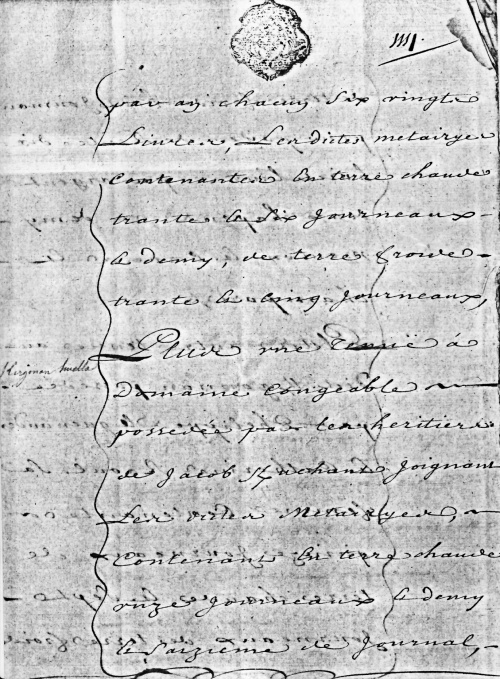 par an chacun six vingts
Livres, Lesdictes metairyes
Contenantes En terre chaude
trante & six Journeaux
& demy, de terre froide
trante & cinq Journeaux,
Plus une Tenuë á
Domaine congeable
possedée par les heritiers
de Jacob Joignant
Les dictes Metairyes,
Contenant En terre chaude
unze Journeaux & demy
& saizieme de Journal,